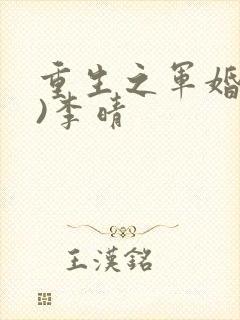 重生之军婚
)李晴
王漢銘